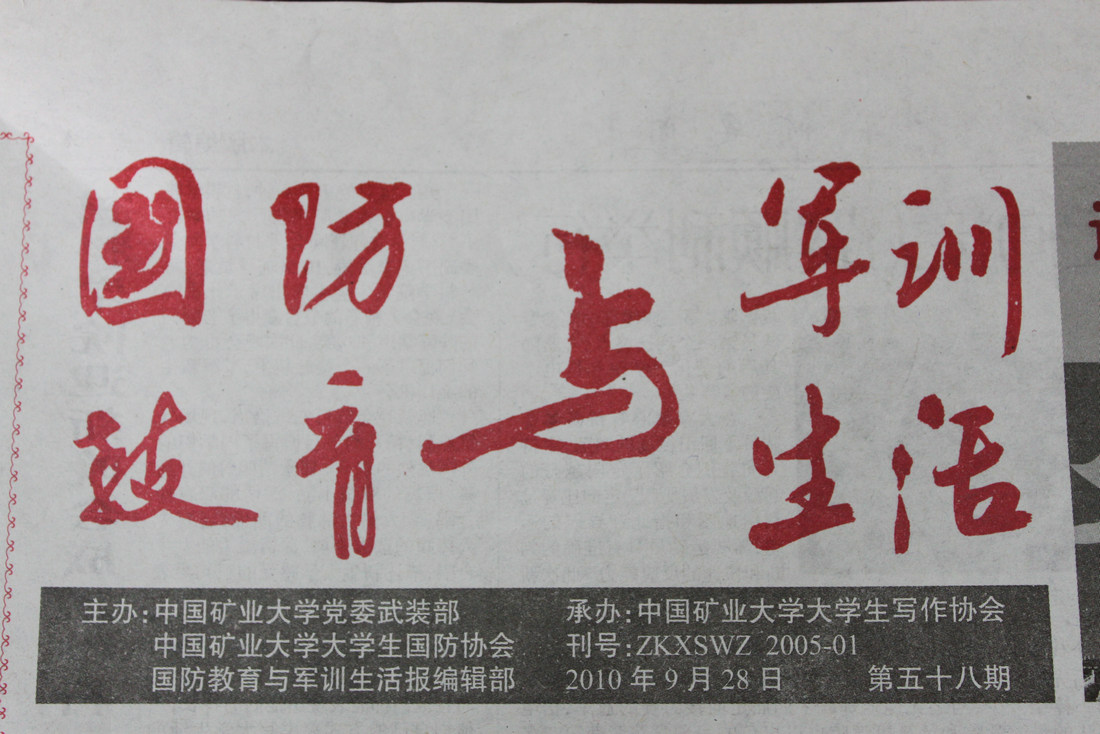 国防教育与军训生活
主办:中国矿业大学党委武装部
中国矿业大学大学生国防协会
国防教育与军训生活报编辑部
承办:中国矿业大学大学生写作协会
刊号:ZKXSWZ 2005-01
2010年9月28日 第五十八期